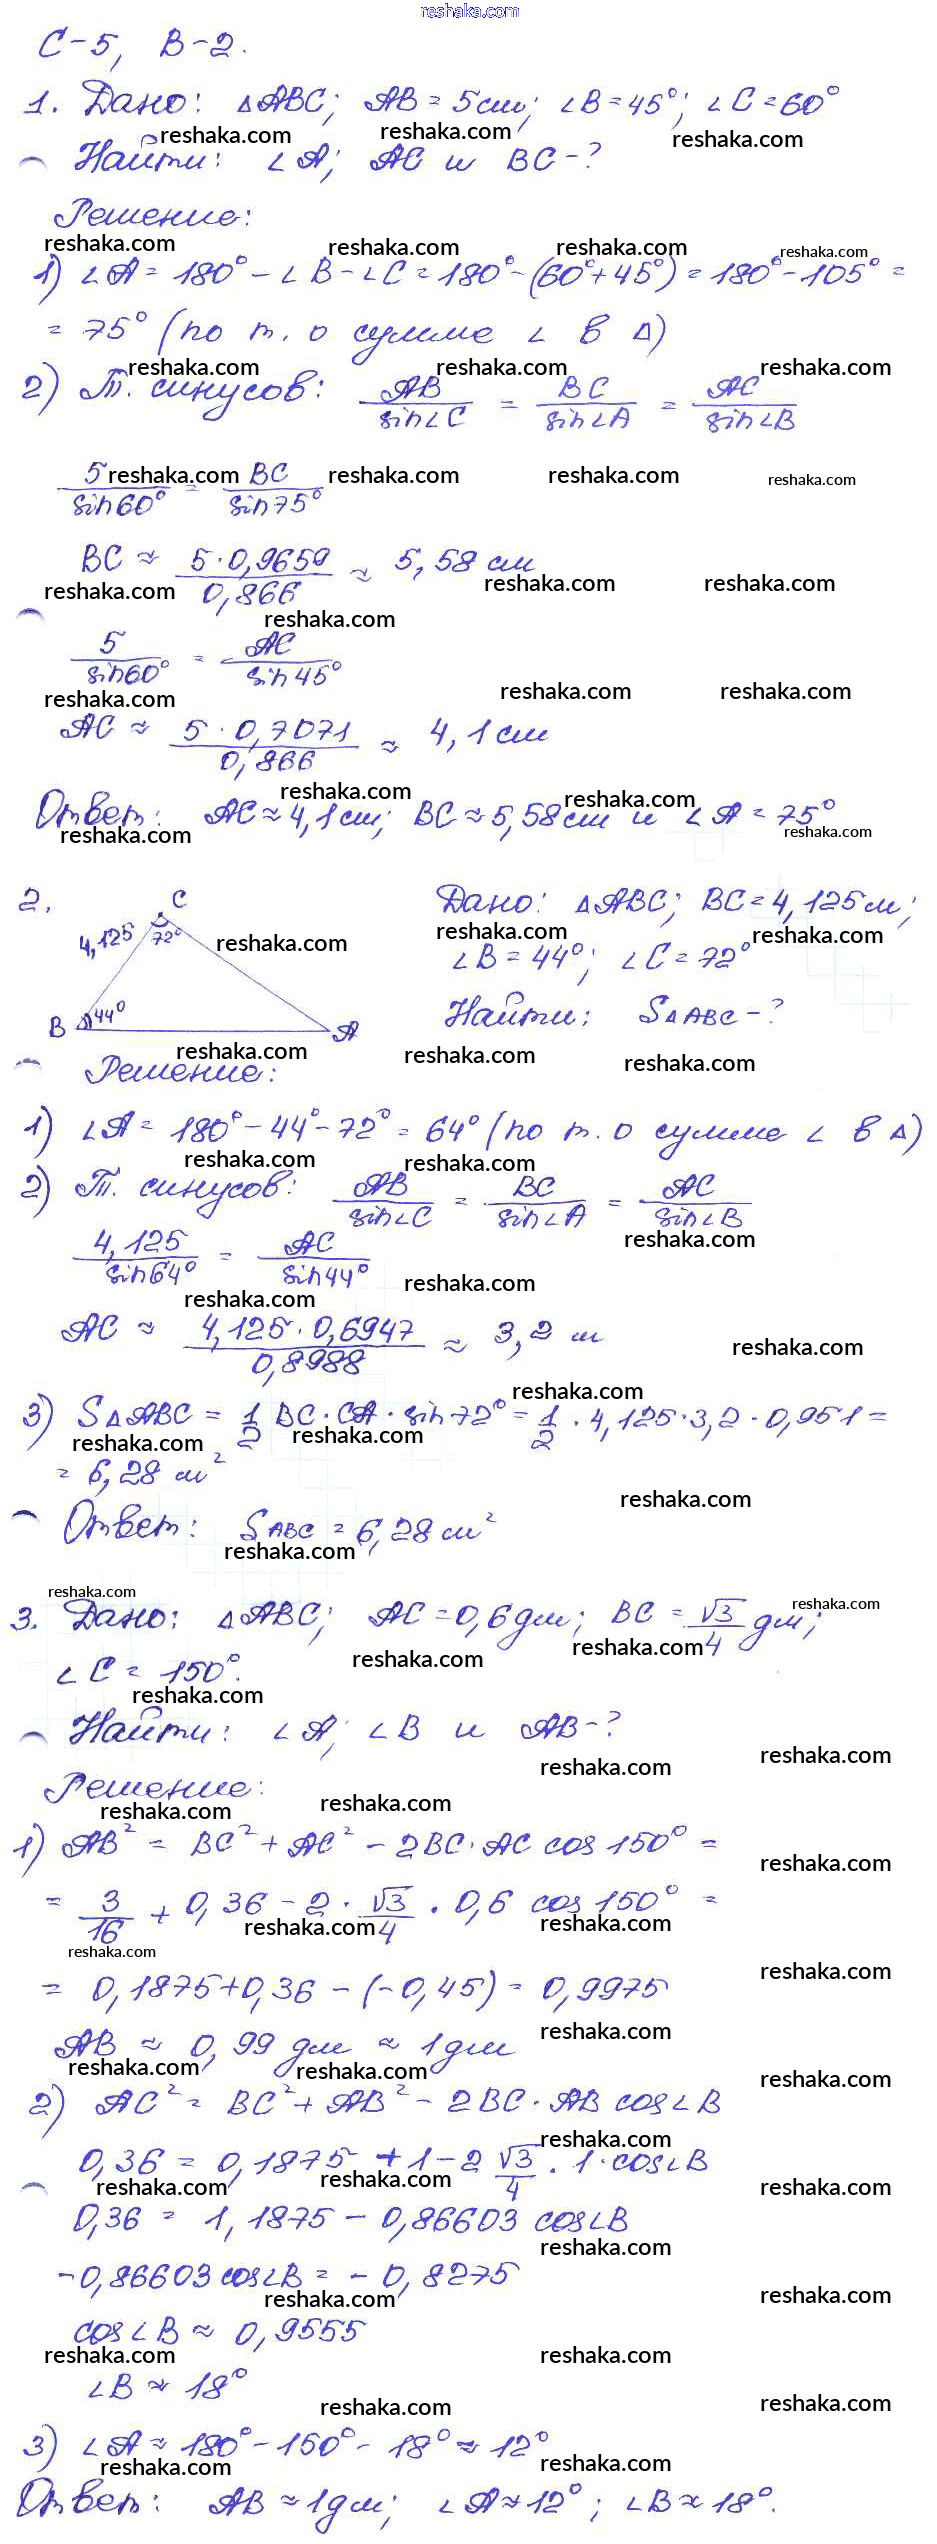 reshaka.com
С-5, В-2.
1. Дано: △ABC; AB = 5см; ∠B = 45°; ∠C = 60°
Найти: ∠A; AC и BC - ?
Решение:
1) ∠A = 180° - ∠B - ∠C = 180° - (60° + 45°) = 180° - 105° =
= 75° (по т. о сумме ∠ в △)
2) Т. синусов: AB/sin∠C = BC/sin∠A = AC/sin∠B
5/sin60° = BC/sin75°
BC ≈ 5·0,9659/0,866 ≈ 5,58 см
5/sin60° = AC/sin45°
AC ≈ 5·0,7071/0,866 ≈ 4,1 см
Ответ: AC ≈ 4,1см; BC ≈ 5,58см и ∠A = 75°
2.
C
4,125
72°
B
44°
A
Дано: △ABC; BC = 4,125м;
∠B = 44°; ∠C = 72°
Найти: S△ABC - ?
Решение:
1) ∠A = 180° - 44° - 72° = 64° (по т. о сумме ∠ в △)
2) Т. синусов: AB/sin∠C = BC/sin∠A = AC/sin∠B
4,125/sin64° = AC/sin44°
AC ≈ 4,125·0,6947/0,8988 ≈ 3,2 м
3) S△ABC = 1/2 BC·CA·sin72° = 1/2 · 4,125·3,2·0,951 =
= 6,28 м²
Ответ: SABC = 6,28 м²
3. Дано: △ABC; AC = 0,6дм; BC = √3/4 дм;
∠C = 150°.
Найти: ∠A; ∠B и AB - ?
Решение:
1) AB² = BC² + AC² - 2BC·AC cos150° =
= 3/16 + 0,36 - 2·√3/4 · 0,6 cos150° =
= 0,1875 + 0,36 - (-0,45) = 0,9975
AB ≈ 0,99 дм ≈ 1дм
2) AC² = BC² + AB² - 2BC·AB cos∠B
0,36 = 0,1875 + 1 - 2 √3/4 · 1·cos∠B
0,36 = 1,1875 - 0,86603 cos∠B
-0,86603 cos∠B = -0,8275
cos∠B ≈ 0,9555
∠B ≈ 18°
3) ∠A ≈ 180° - 150° - 18° ≈ 12°
Ответ: AB ≈ 1дм; ∠A ≈ 12°; ∠B ≈ 18°.